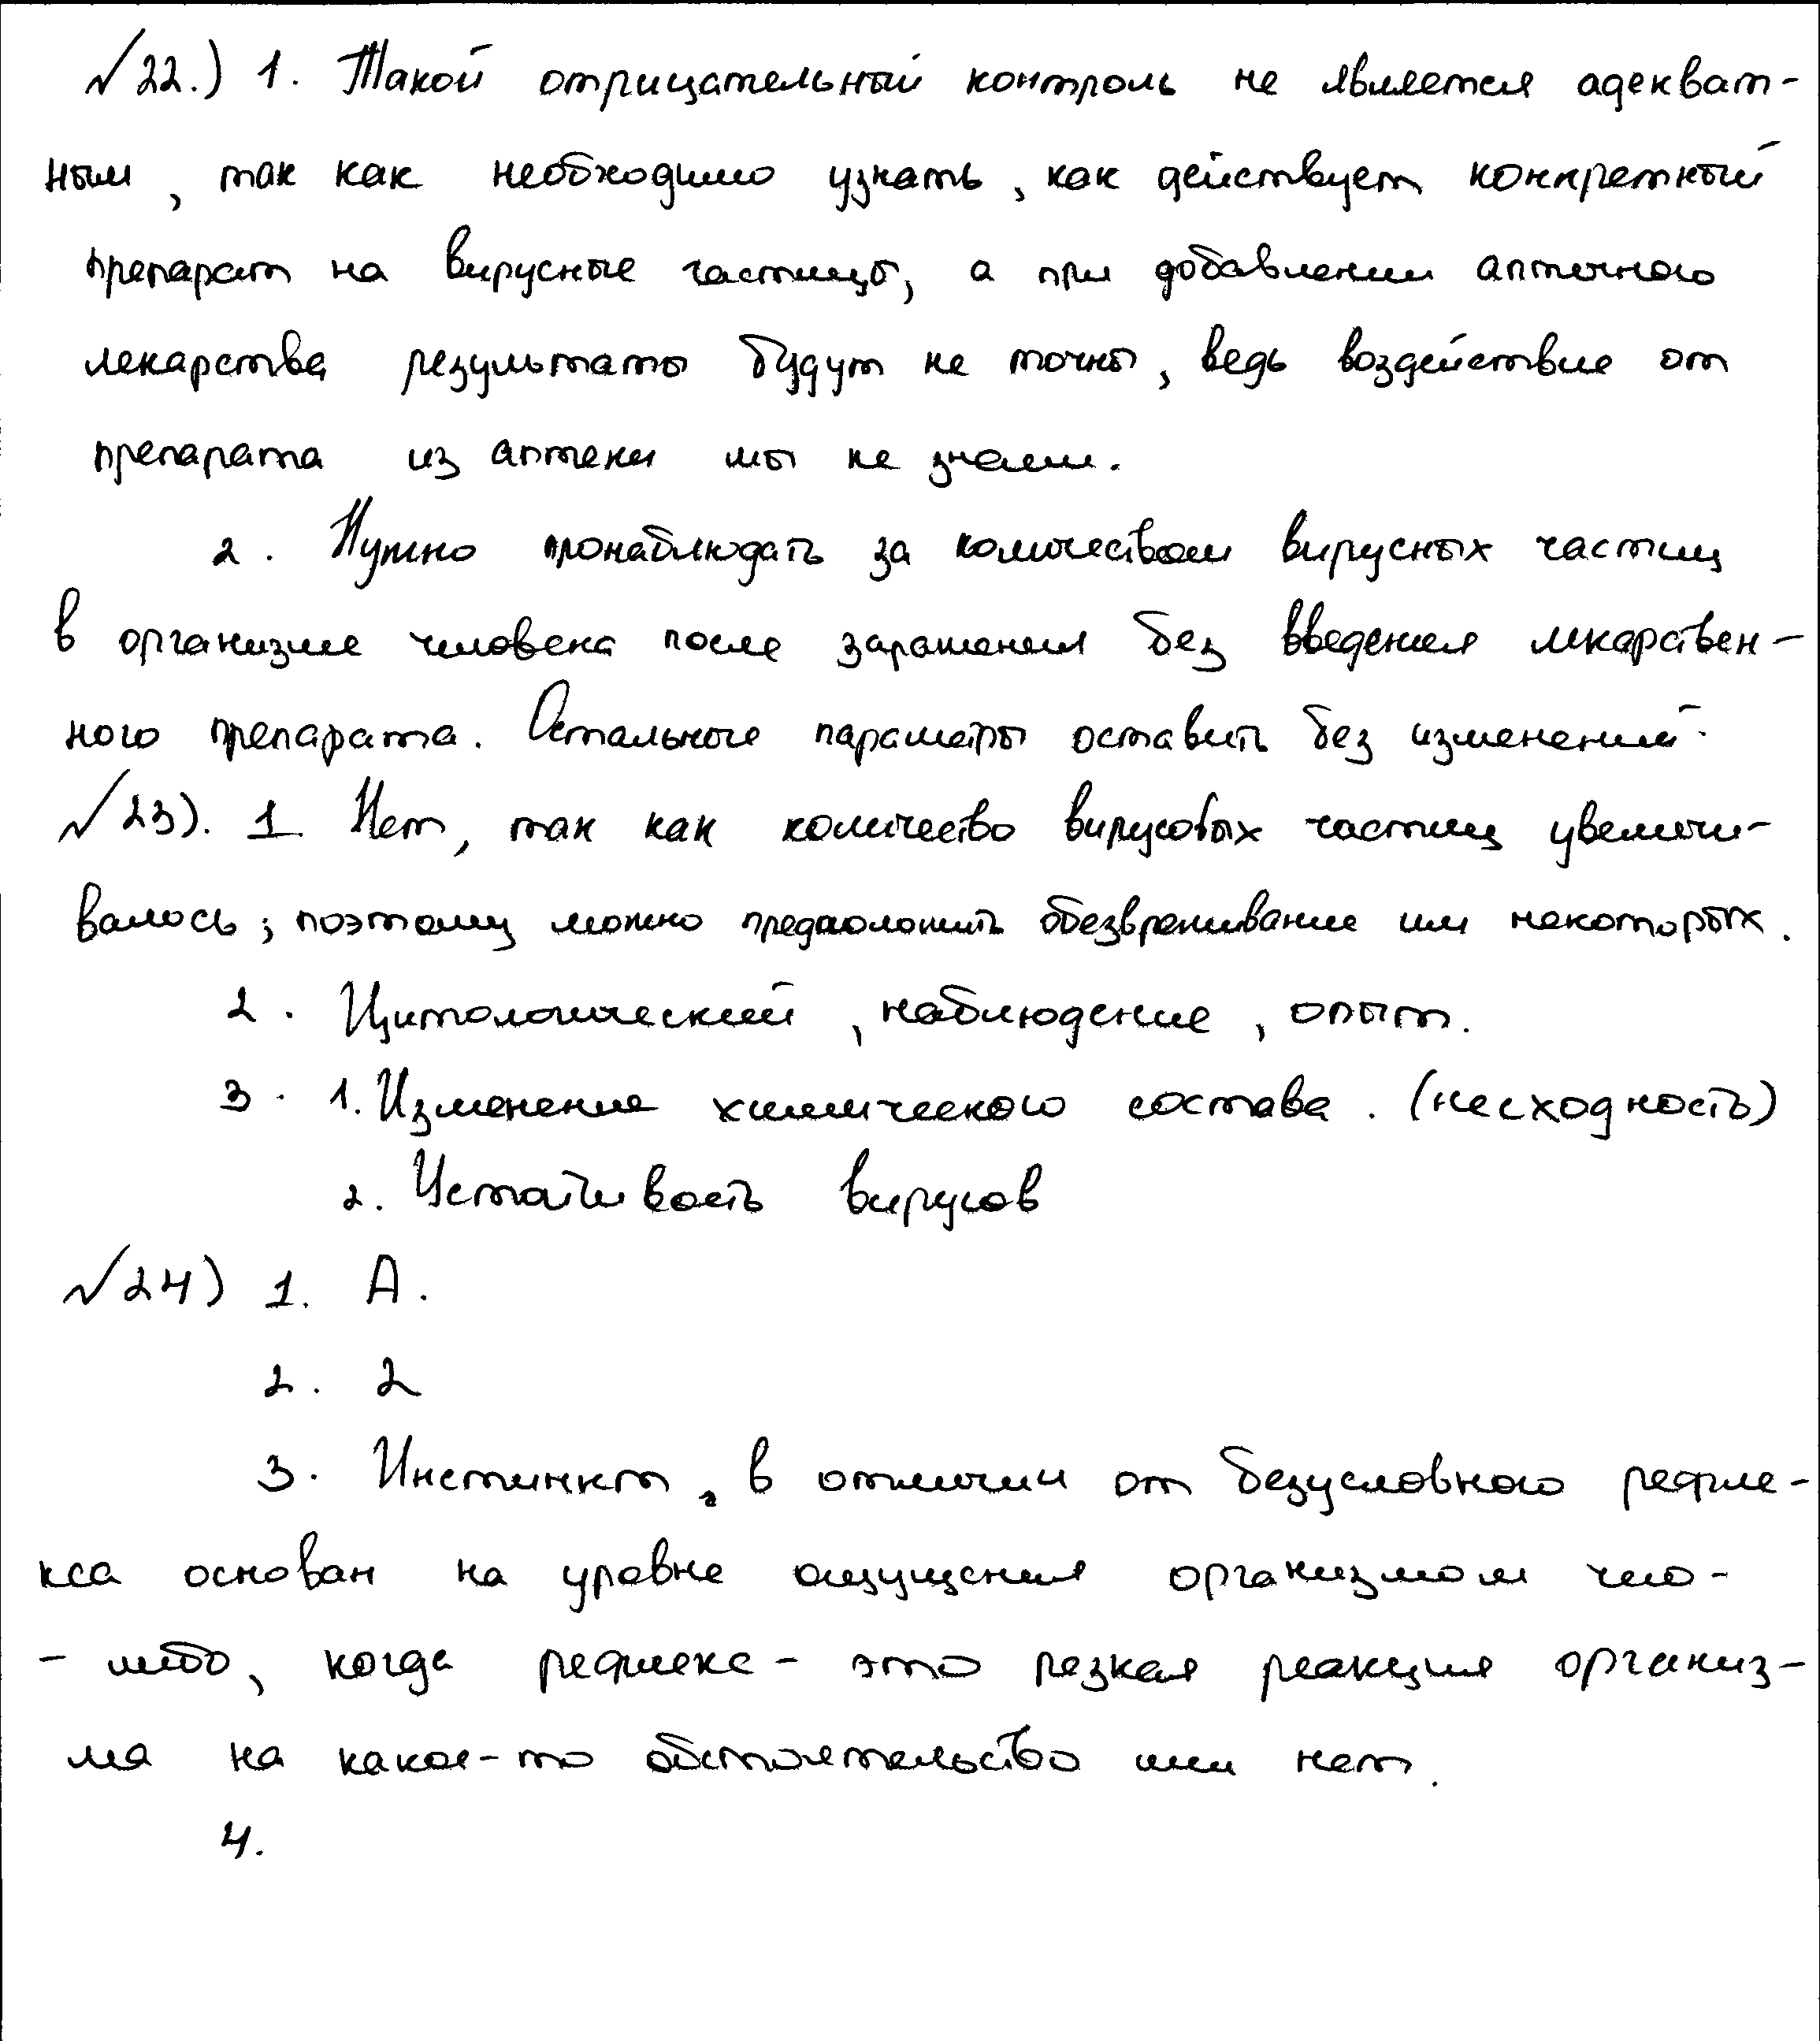 №22.) 1. Такой отрицательный контроль не является адекват-
ным, так как необходимо узнать, как действует конкретный
препарат на вирусные частицы, а при добавлении аптечного
лекарства результаты будут не точны, ведь воздействие от
препарата из аптеки мы не знаем.
2. Нужно пронаблюдать за количеством вирусных частиц
в организме человека после заражения без введения лекарствен-
ного препарата. Остальные параметры оставить без изменений.
№23). 1 Нет, так как количество вирусовых частиц увеличи-
валось; поэтому можно предположить обезвреживание им некоторых.
2. Цитологический, наблюдение, опыт.
3. 1. Изменение химического состава. (несходность)
2. Устойчивость вирусов
№24) 1. А.
2. 2
3. Инстинкт, в отличии от безусловного рефле-
кса основан на уровне ощущения организмом чего-
- либо, когда рефлекс - это резкая реакция организ-
ма на какое-то обстоятельство или нет.
4.